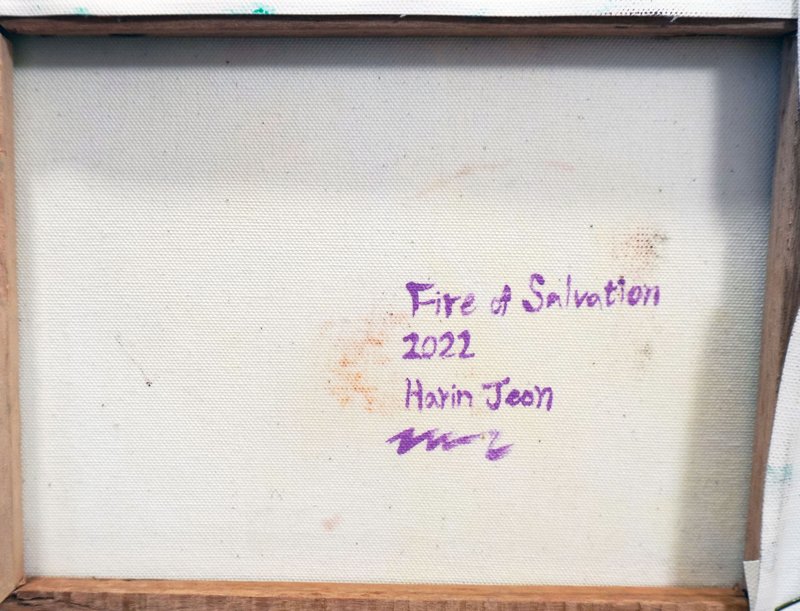 Fire of Salvation
2022
Harin Jeon